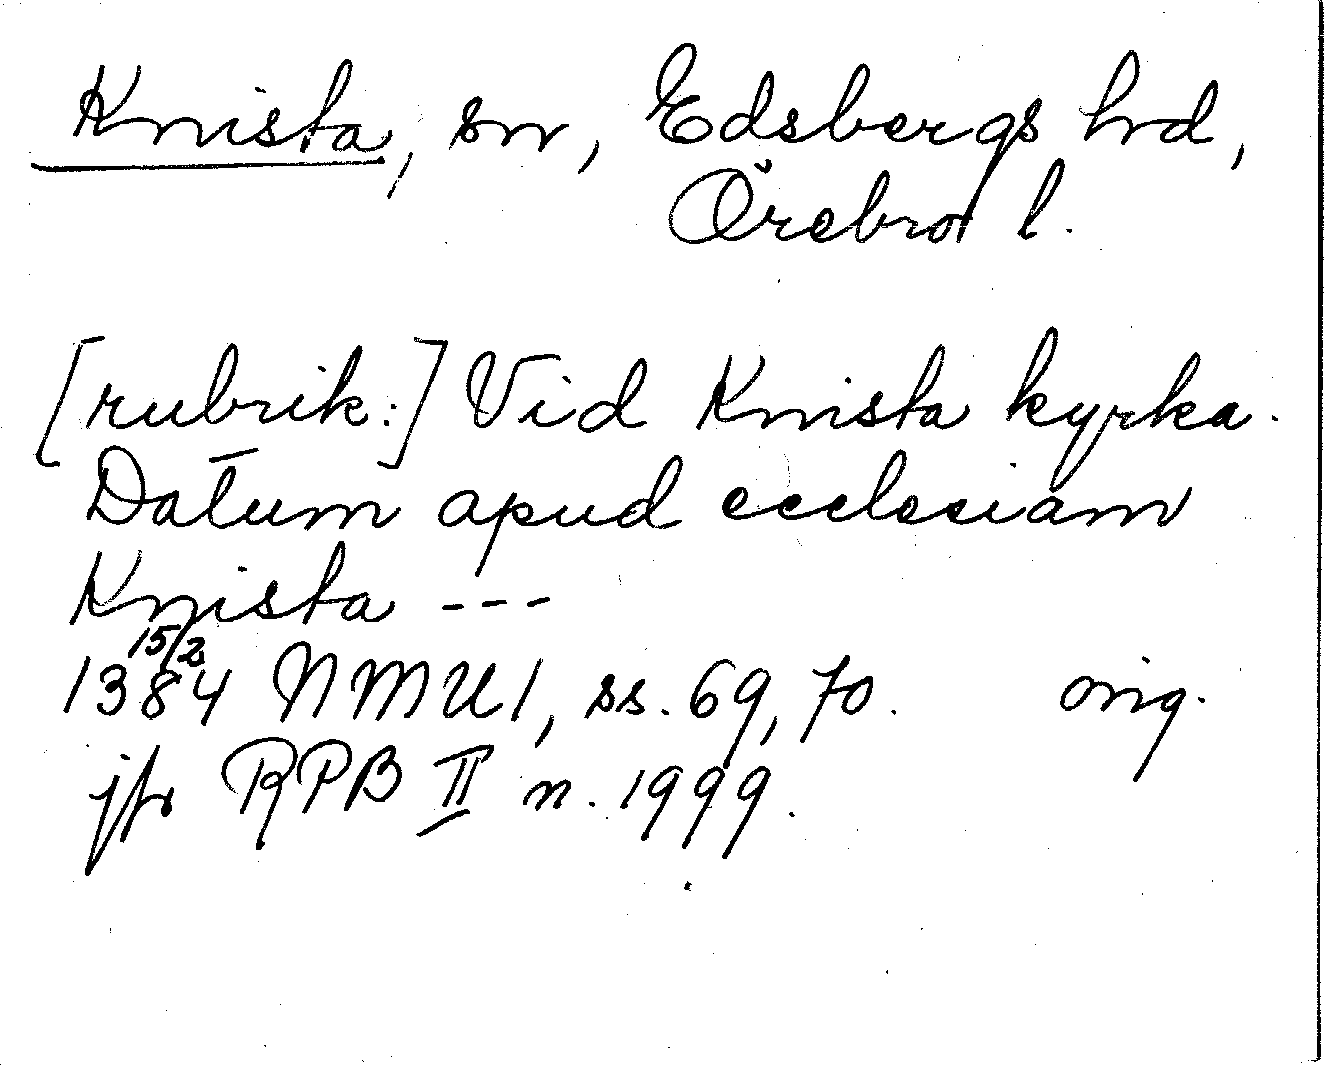 Knista, sn, Edsbergs hrd,
Örebro l.
[rubrik:] Vid Knista kyrka.
Datum apud ecclesiam
Knista ---
15/2
1384 NMU1, ss. 69, 70. orig.
jfr RPB II n. 1999.